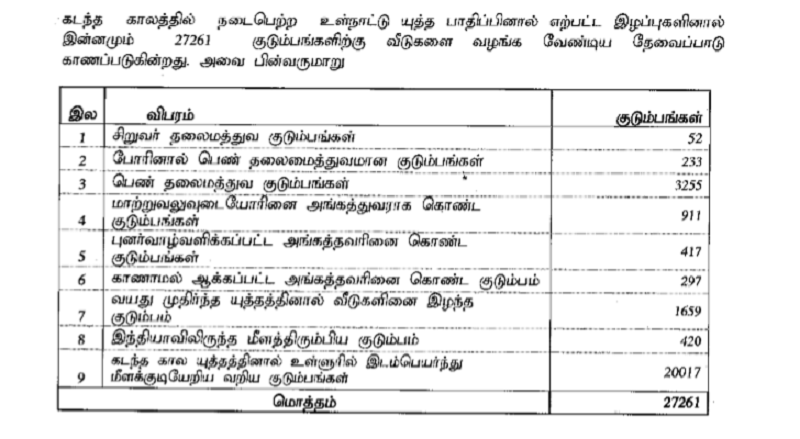 கடந்த காலத்தில் நடைபெற்ற உள்நாட்டு யுத்த பாதிப்பினால் எற்பட்ட இழப்புகளினால்
இன்னமும் 27261 குடும்பங்களிற்கு வீடுகளை வழங்க வேண்டிய தேவைப்பாடு
காணப்படுகின்றது. அவை பின்வருமாறு
இல விபரம் குடும்பங்கள்
1 சிறுவர் தலைமத்துவ குடும்பங்கள் 52
2 போரினால் பெண் தலைமைத்துவமான குடும்பங்கள் 233
3 பெண் தலைமத்துவ குடும்பங்கள் 3255
மாற்றுவலுவுடையோரினை அங்கத்துவராக கொண்ட
4 குடும்பங்கள் 911
புனர்வாழ்வளிக்கப்பட்ட அங்கத்தவரினை கொண்ட
5 குடும்பங்கள் 417
6 காணாமல் ஆக்கப்பட்ட அங்கத்தவரினை கொண்ட குடும்பம் 297
வயது முதிர்ந்த யுத்தத்தினால் வீடுகளினை இழந்த
7 குடும்பம் 1659
8 இந்தியாவிலிருந்த மீளத்திரும்பிய குடும்பம் 420
கடந்த கால யுத்தத்தினால் உள்ளுரில் இடம்பெயர்ந்து
9 மீளக்குடியேறிய வறிய குடும்பங்கள் 20017
மொத்தம் 27261